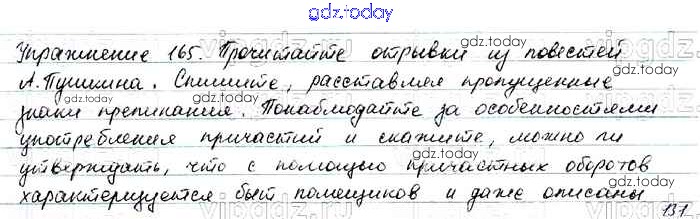 gdz.today
Упражнение 165. Прочитайте отрывки из повестей
А.Пушкина. Спишите, расставляя пропущенные
знаки препинания. Понаблюдайте за особенностями
употребления причастий и скажите, можно ли
утверждать, что с помощью причастных оборотов
характеризуется быт помещиков и даже описаны
131